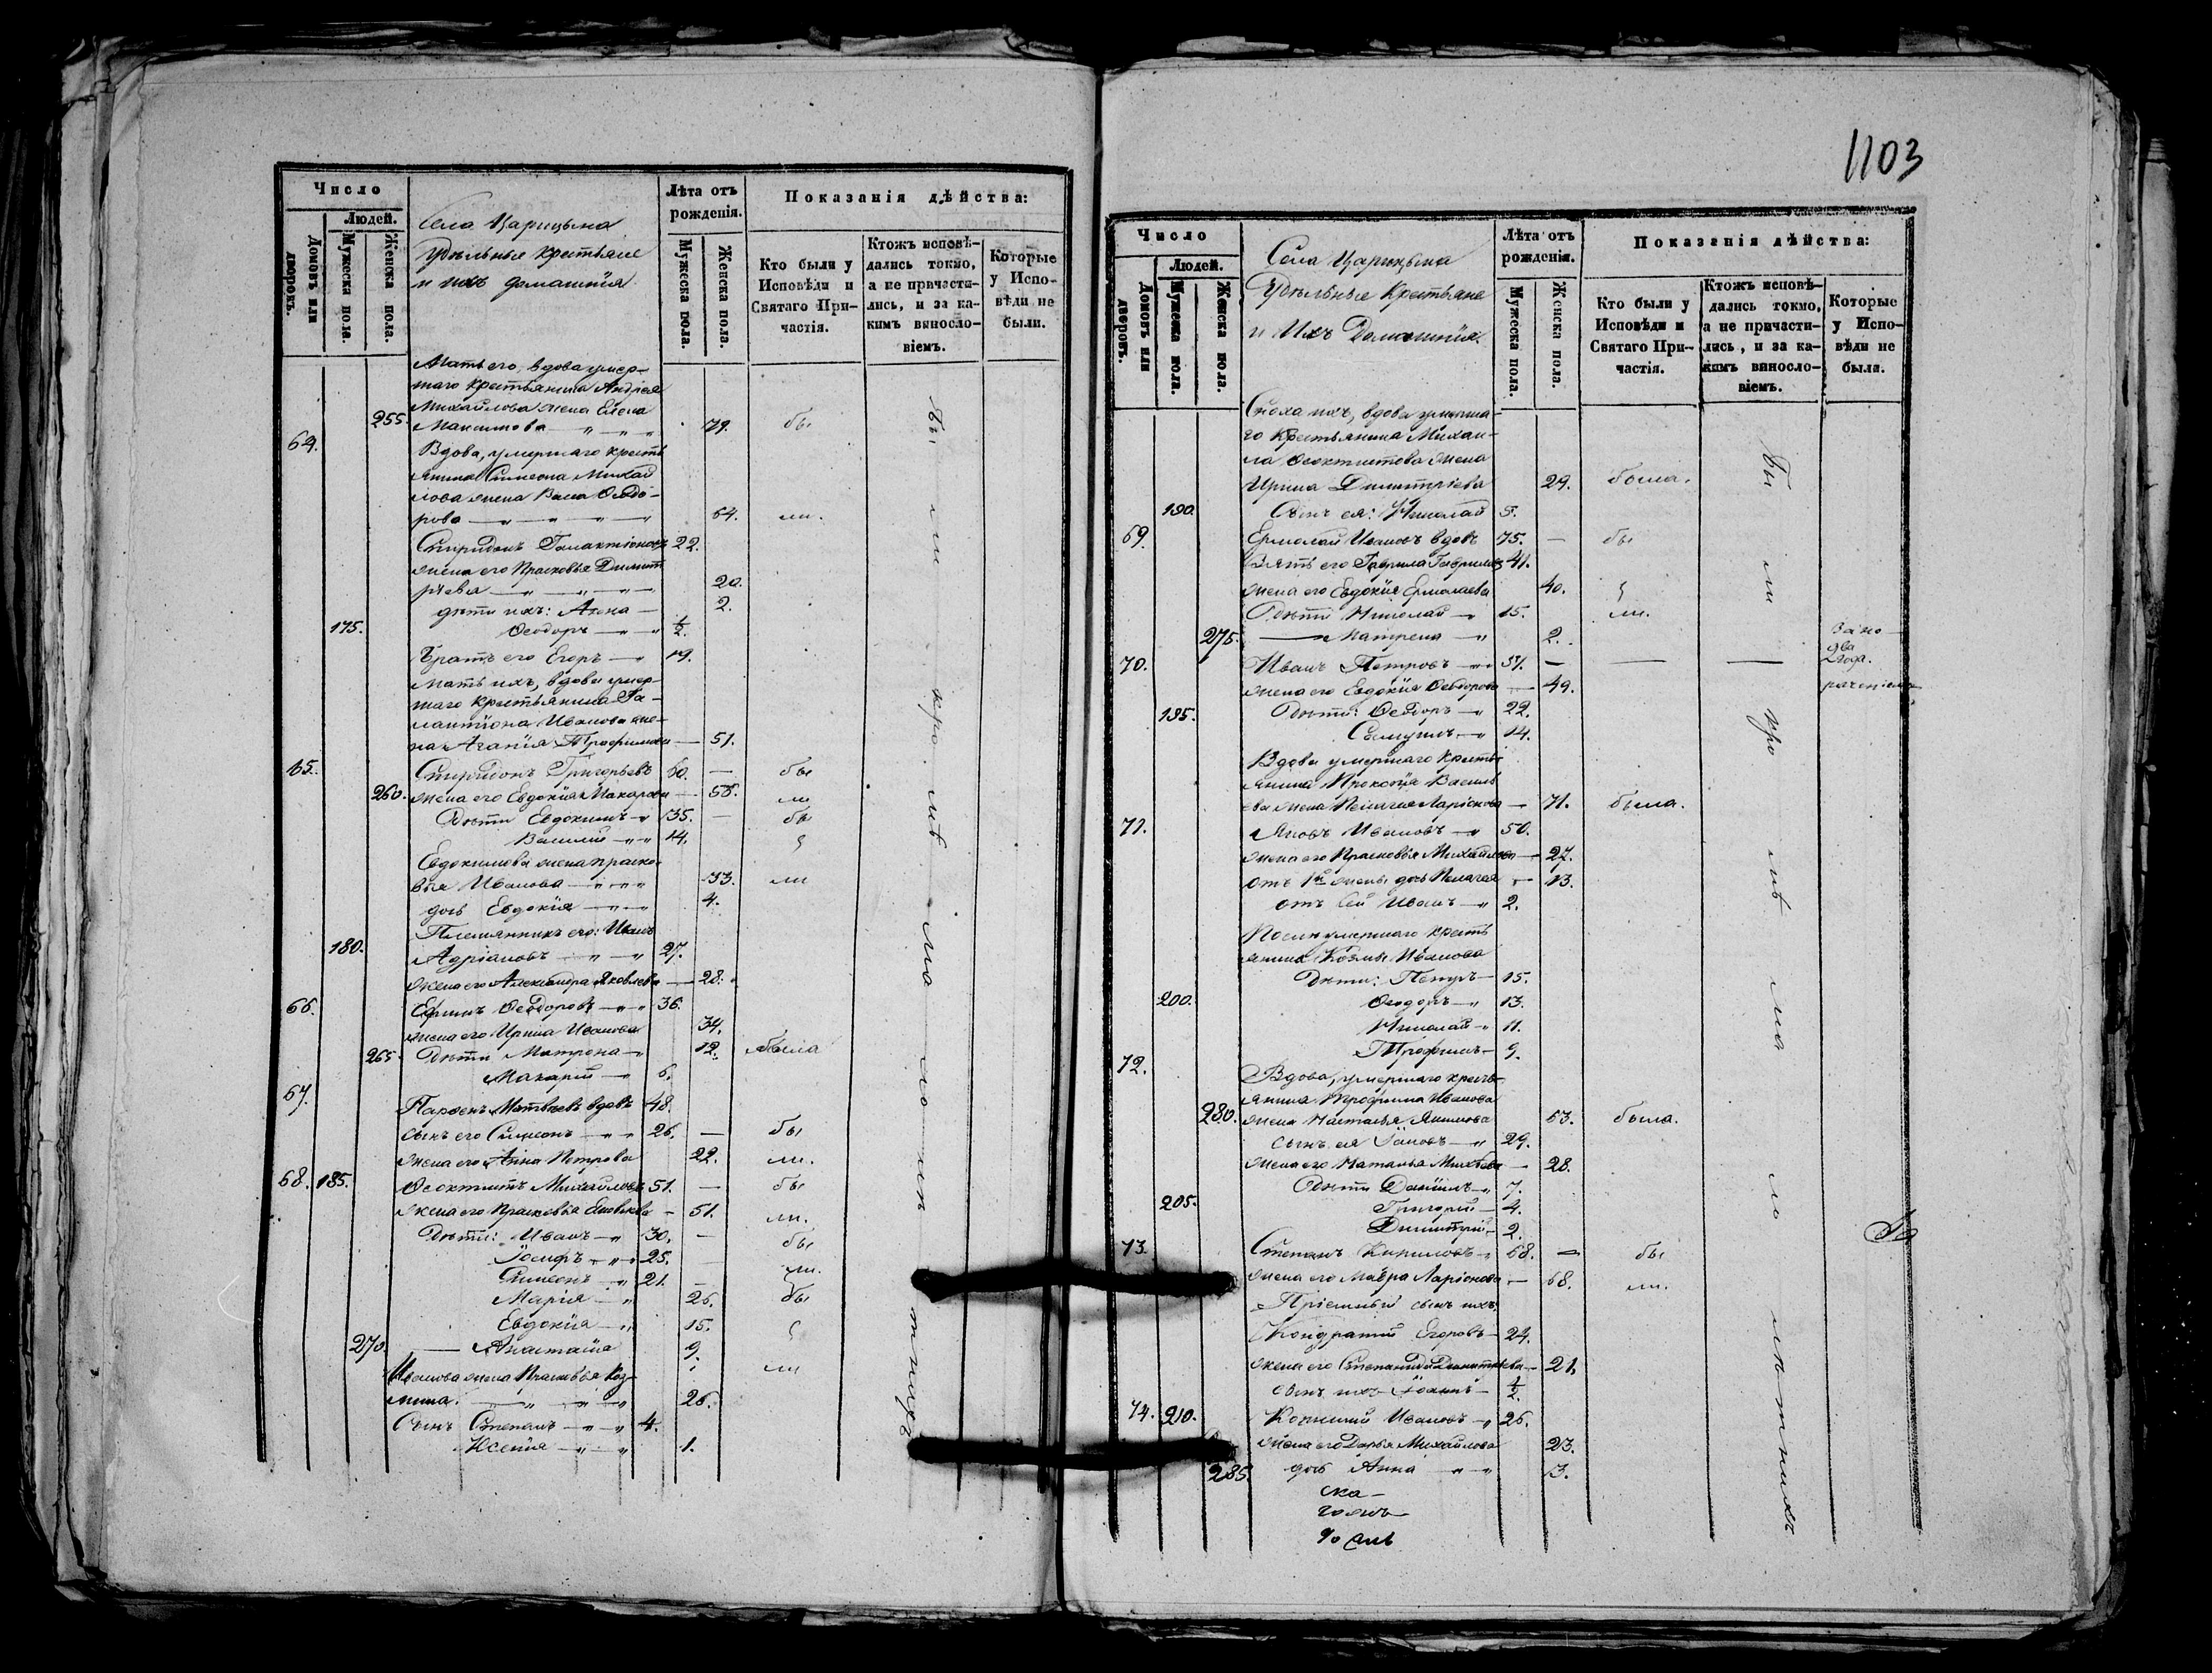 Число
Людей.
Домовъ или дворовъ.
Мужеска пола.
Женска пола.
Села Царицына
Удѣльные крестьяне
и ихъ домашнія
Лѣта отъ рожденія.
Мужеска пола.
Женска пола.
Показанія дѣйства:
Кто были у Исповѣди и Святаго Причастія.
Ктожъ исповѣдались токмо, а не причастились, и за какимъ винословіемъ.
Которые у Исповѣди не были.
Мать его, вдова умер-
шаго крестьянина Андрея
Михайлова жена Елена
255. Максимова 79. бы
64. Вдова, умершаго кресть
янина Симеона Михай
лова жена Васса Ѳеодо-
рова 64. ли.
Спиридонъ Галактіоновъ 22.
жена его Прасковья Димит
ріева 20.
дѣти ихъ: Анна 2.
175. Ѳеодоръ ½.
Братъ его Егоръ 19.
Мать ихъ, вдова умер-
шаго крестьянина Га-
лактіона Иванова же-
на Агапія Трофимова 51.
65. Спиридонъ Григорьевъ 60. — бы
260. жена его Евдокія Макарова 58. ли
Дѣти Евдокимъ 35. — бы
Василій 14.
Евдокимова жена Праско-
вья Иванова 33. ли
дочь Евдокія 4.
Племянникъ его: Иванъ
180. Адріановъ 27.
жена его Александра Яковлева 28.
66. Ефимъ Ѳеодоровъ 36.
жена его Ирина Иванова 34.
265. Дѣти Матрона 12. была
Макарій 6.
67. Парѳенъ Матвѣевъ вдовъ 48.
сынъ его Симеонъ 26. — бы
жена его Анна Петрова 22. ли.
68. 185. Ѳеоктистъ Михайловъ 51. — бы
жена его Прасковья Яковлева 51. ли.
Дѣти: Иванъ 30. — бы
Іосифъ 25. ли.
Симеонъ 21.
Марія 26. бы
Евдокія 15.
270. Анастасія 9.
Иванова жена Прасковья Коз-
мина. 26. ли
Сынъ Степанъ 4.
Ксенія 1.
Были про мѣ ма ло лѣ тнихъ
1103
Число
Людей.
Домовъ или дворовъ.
Мужеска пола.
Женска пола.
Села Царицына
Удѣльные Крестьяне
и Ихъ Домашнія.
Лѣта отъ рожденія.
Мужеска пола.
Женска пола.
Показанія дѣйства:
Кто были у Исповѣди и Святаго Причастія.
Ктожъ исповѣдались токмо, а не причастились, и за какимъ винословіемъ.
Которые у Исповѣди не были.
Сноха ихъ, вдова умерша-
го крестьянина Михаи-
ла Ѳеоктистова жена
Ирина Димитріева 29. была.
190. Сынъ ея: Николай 5.
69. Ермолай Ивановъ вдовъ 75. — бы
Зять его Гаврила Гавриловъ 41.
жена его Евдокія Ермолаева 40.
Дѣти Николай 15. ли.
275. Матрена 2.
70. Иванъ Петровъ 51. — — —
жена его Евдокія Ѳеодорова 49.
195. Дѣти: Ѳеодоръ 22.
Самуилъ 14.
Вдова умершаго кресть
янина Прокопія Василь
ева жена Пелагея Ларіонова 71. была.
71. Яковъ Ивановъ 50.
жена его Прасковья Михайлова 27.
отъ 1й жены дочь Пелагея 13.
отъ сей Иванъ 2.
Послѣ умершаго кресть
янина Козьмы Иванова
Дѣти: Петръ 15.
200. Ѳеодоръ 13.
Николай 11.
Трофимъ 9.
72. Вдова, умершаго кресть-
янина Трофима Иванова
280. жена Наталья Якимова 53. была.
сынъ ея Іаковъ 29.
жена его Наталья 28.
Дѣти Даніилъ 7.
205. Григорій 4.
Димитрій 2.
73. Степанъ Кириловъ 68. — бы
жена его Мавра Ларіонова 68. ли.
Пріемный сынъ ихъ
Кондратій Егоровъ 24.
жена его Степанида Димитріева 21.
сынъ ихъ Іоаннъ ½.
74. 210. Ивановъ 26.
жена его Дарья Михайлова 23.
285. дочь Анна 3.
Бы ли про мѣ ма ло лѣ тнихъ